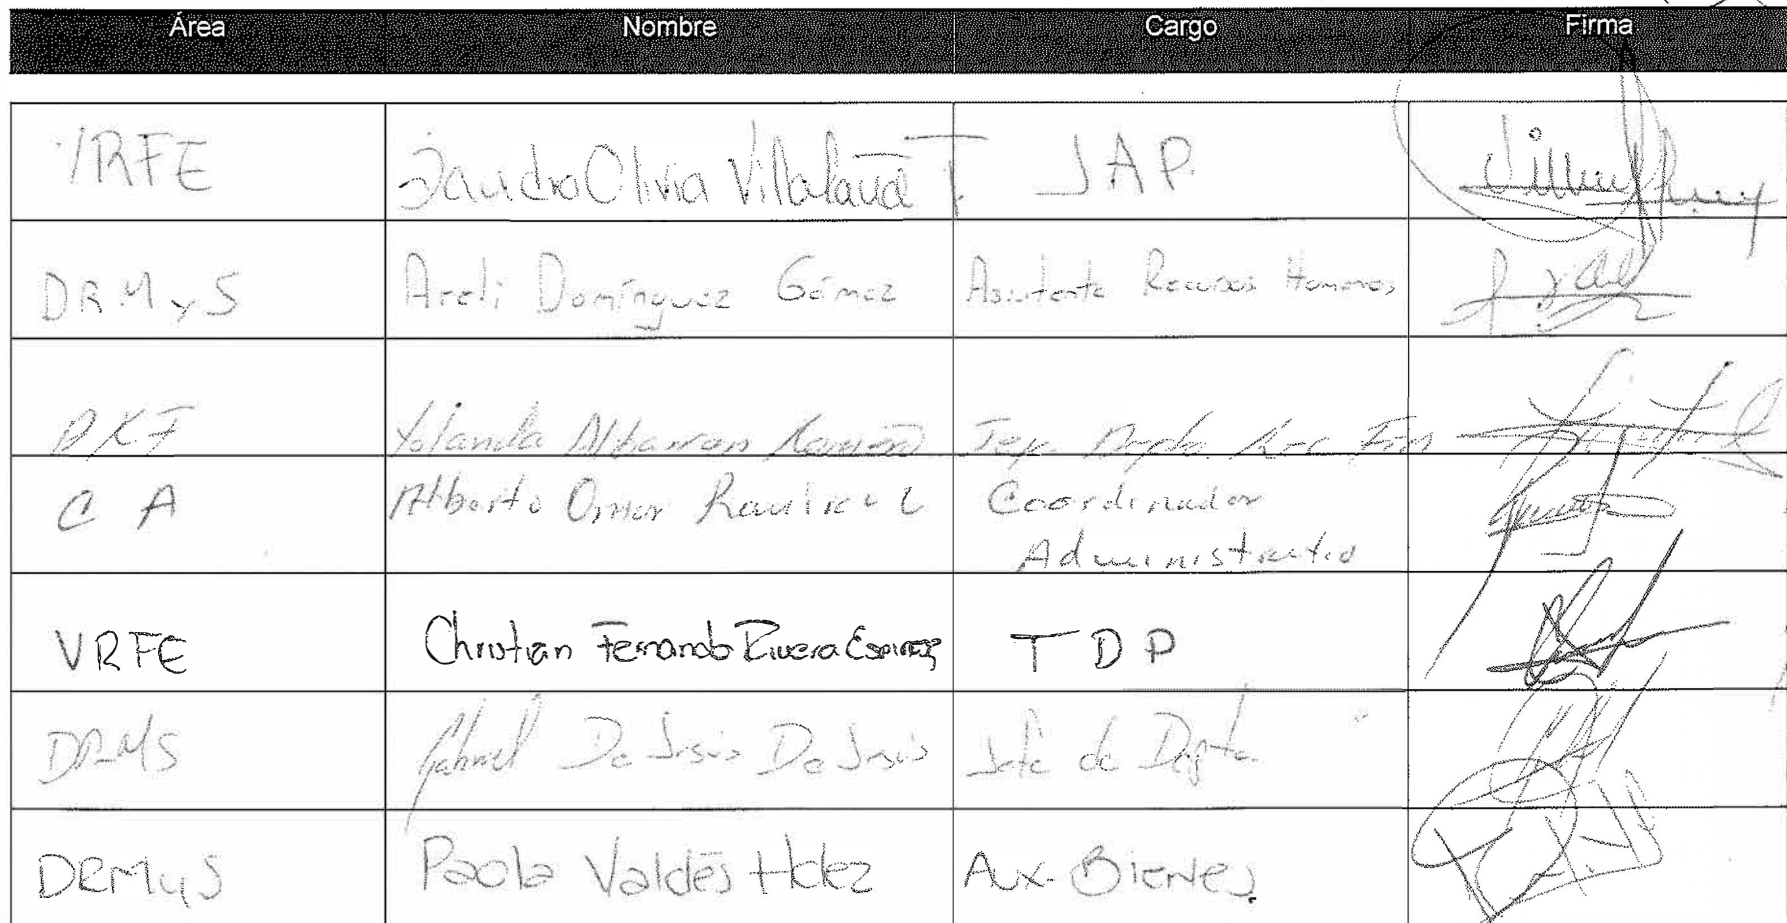 Área Nombre Cargo Firma
VRFE Sandra Olivia Villafaña T. JAP.
DRMyS Areli Domínguez Gómez Asistente Recursos Humanos
Yolanda Albarran Depto. Rec Fin
C A Alberto Omar Ramirez L Coordinador
Administrativo
VRFE Christian Fernando Rivera TDP
DRMS Gabriel De Jesús De Jesús Jefe de Depto.
DRMyS Paola Valdés Hdez Aux. Bienes